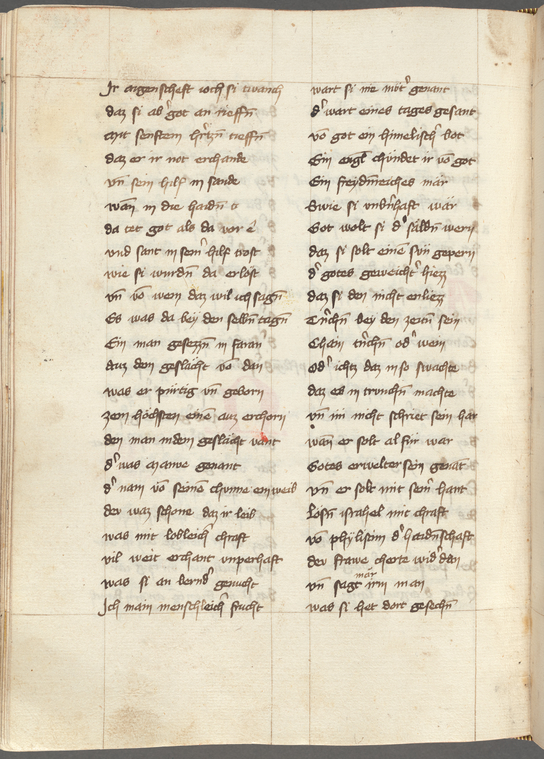 Ir aigenscheft voch si twanch
daz si ab͛ got an rieffn̄
mit senftem h͛tzn̄ tieffn̄
daz er ir not erchande
vn̄ sein hilf in sande
wan̄ in die haidn̄
da tet got als da vor e͛
vnd sant in sein͛ hilf trost
wie si wurdn̄ da erlost
vn̄ vō wem daz wil ich sagn̄
Es was da bey den selbn̄ tagn̄
Ein man gesezzn̄ in faran
auz dem geslächt vō dan
was er pürtig vn̄ geborn
zem höchsten einē auz erchorn
den man in dem geslächt vant
d͛ was manue genant
d͛ nam vō seinē chunne ein weib
der waz schone daz ir leib
was mit lobleich͛ chraft
vil weit erchant vnperhaft
was si an bernd͛ genucht
Ich main menschleich͛ frucht
wart si nie mūt͛ genant
d͛ wart eines tages gesant
vō got ein himelisch͛ bot
Ein engl chündet ir vō got
Ein freydn̄reiches mär
Swie si vnb͛haft wär
Got wolt si d͛ säldn̄ wern
daz si solt einē sun gepern
d͛ gotes geweicht͛ hiezz
daz si den nicht enliezz
Trichn̄ bey den zeitn̄ sein
Chain tr͛chn̄ od͛ wein
Od͛ ichtz daz in so swachte
daz es in trunchn̄ machte
vn̄ im nicht schriet sein har
wan̄ er solt al für war
Gotes erwelter sein genāt
vn̄ er solt mit sein͛ hant
Lösn̄ israhel mit chraft
vō phylistim d͛ haidn̄schaft
der frawe cherte wid͛ dan
vn̄ sagt mär irm man
was si het dort gesechn̄